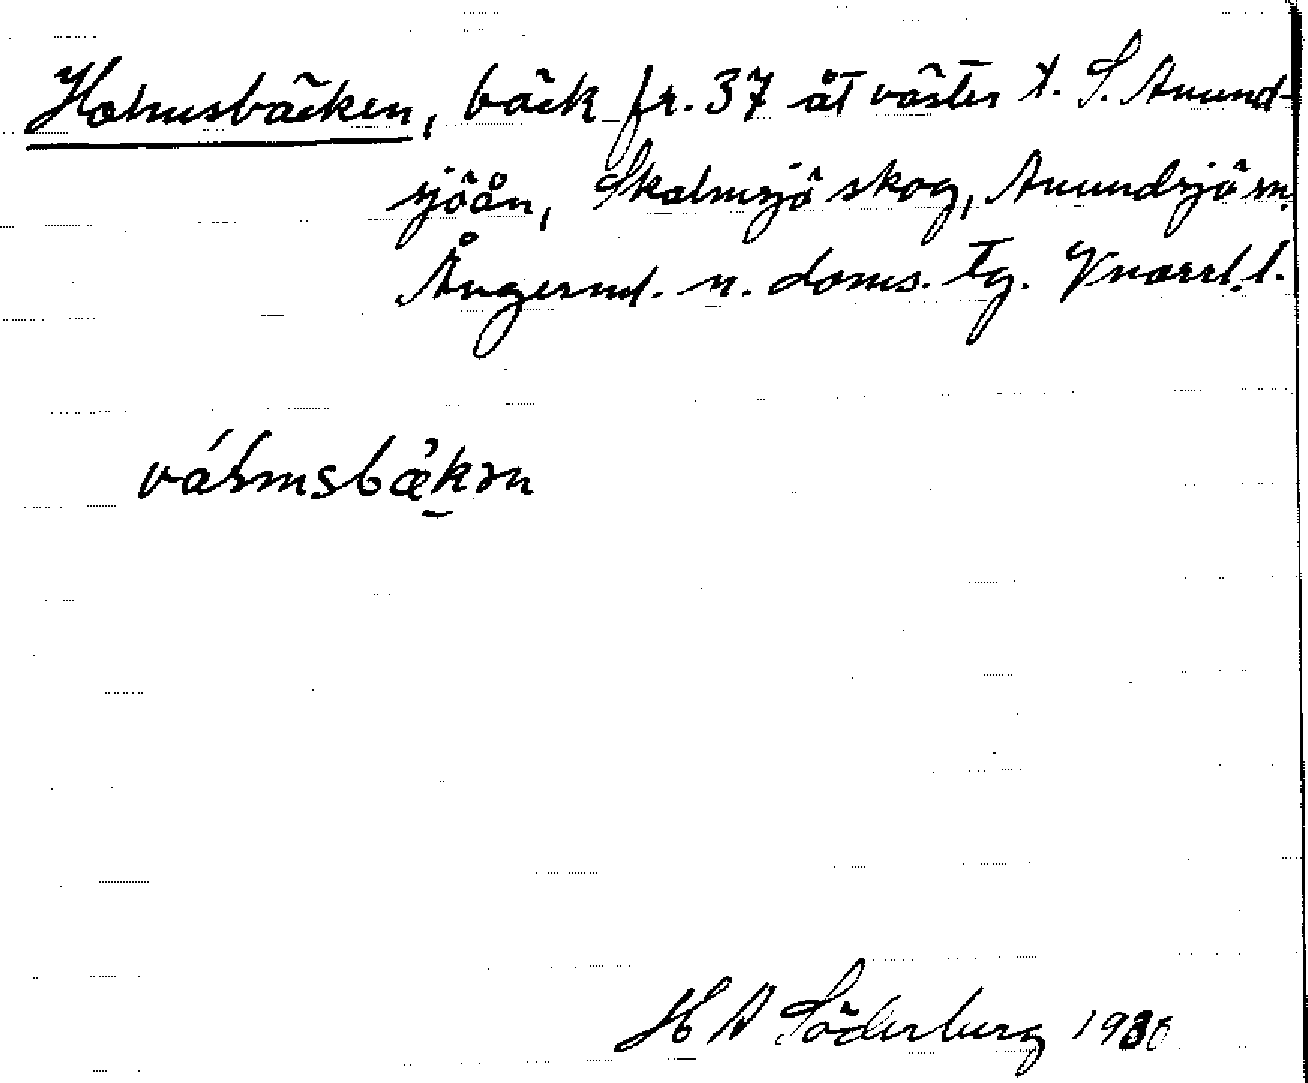 Halmsbäcken, bäck fr. 37 åt väster t. S. Anund-
sjöån, Skalmsjö skog, Anundsjö sn.
Ångerml. n. doms. tg. Vnorrl. l.
H A Söderberg